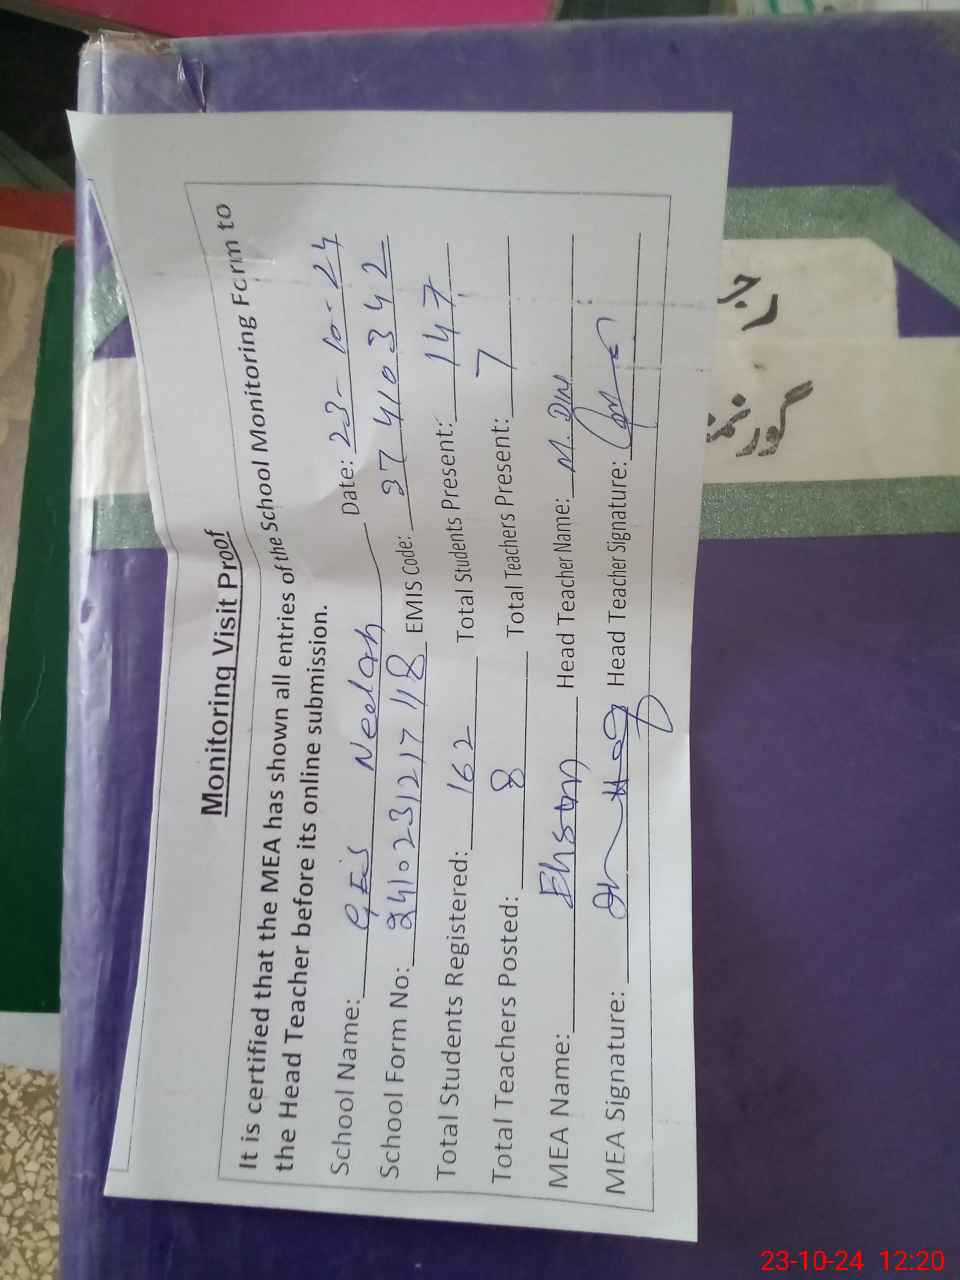 Monitoring Visit Proof
It is certified that the MEA has shown all entries of the School Monitoring Form to
the Head Teacher before its online submission.
School Name: GES Neelah Date: 23-10-24
School Form No: 241023121718 EMIS Code: 37410342
Total Students Registered: 162 Total Students Present: 147
Total Teachers Posted: 8 Total Teachers Present: 7
MEA Name: Ehsan Head Teacher Name: M. Din
MEA Signature: Head Teacher Signature:
23-10-24 12:20